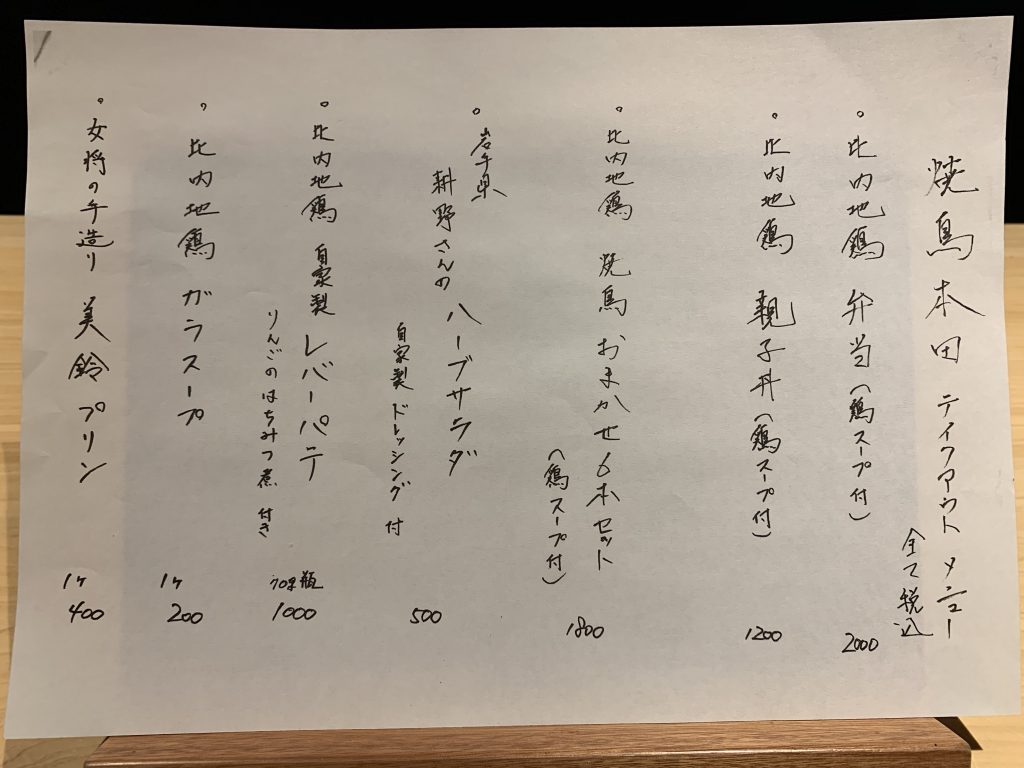 焼鳥 本田 テイクアウト メニュー
全て税込
。比内地鶏 弁当(鶏スープ付)
2000
。比内地鶏 親子丼(鶏スープ付)
1200
。比内地鶏 焼鳥おまかせ6本セット
(鶏スープ付)
1800
。岩手県
耕野さんの ハーブサラダ
自家製 ドレッシング 付
500
。比内地鶏 自家製 レバーパテ
りんごのはちみつ煮 付き
瓶
1000
。比内地鶏 ガラスープ
1ヶ
200
。女将の手造り 美鈴プリン
1ヶ
400